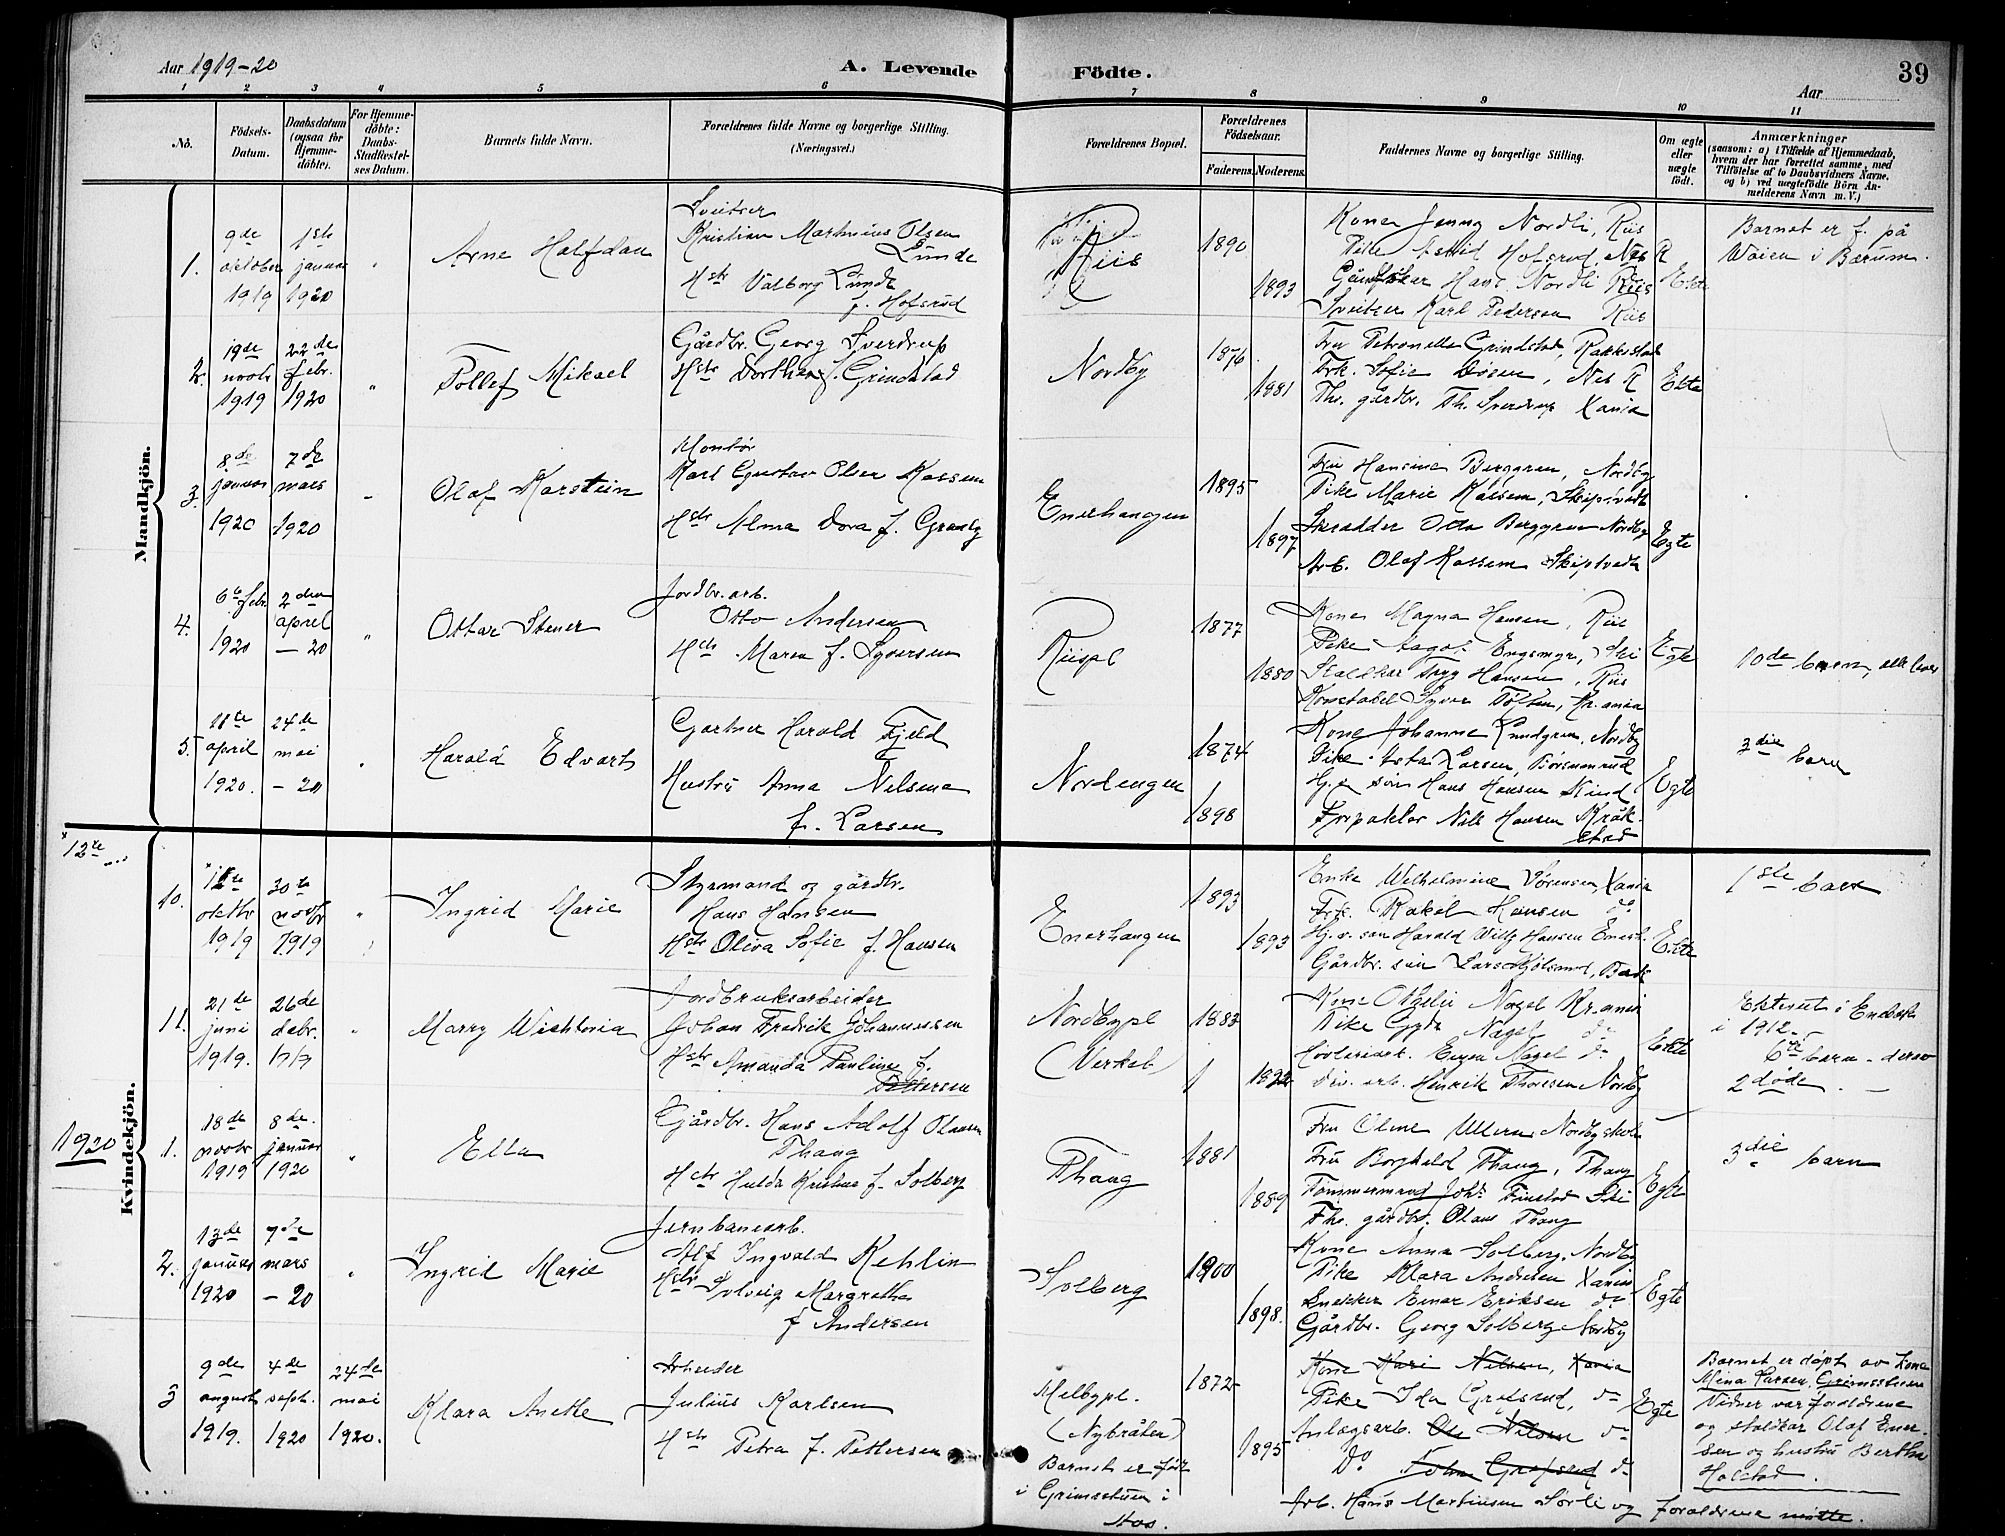 Aar 1919-20
A. Levende Födte.
39
Aar
1 2 3 4 5 6 7 8 9 10 11
No.
Födsels-Datum.
Daabsdatum (ogsaa for Hjemme-döbte).
For Hjemme-döbte: Daabs-Stadfæstel-ses Datum.
Barnets fulde Navn.
Forældrenes fulde Navne og borgerlige Stilling. (Næringsvei.)
Forældrenes Bopæl.
Forældrenes Födselsaar.
Faderens. Moderens.
Faddernes Navne og borgerlige Stilling.
Om ægte eller uægte födt.
Anmærkninger
(saasom: a) i Tilfælde af Hjemmedaab, hvem der har forrettet samme, med Tilföielse af to Daabsvidners Navne. og b) ved uægtefödte Börn An-melderens Navn m. V.)
Mandkjön.
1.
9de oktober 1919
1ste januar 1920
Arne Halfdan
Sveitser
Kristian Martinius Olsen
Lunde
Hstr Valborg Lunde
f. Hofsrud
Riis
1890
1893
Kone Jenny Nordli, Riis
Pike Astrid Hofsrud Nes R
Hans Nordli Riis
Sveitser Karl Pedersen Riis
Ekte
Barnet er f. på
Wøien i Bærum.
2.
19de novbr 1919
22de febr. 1920
"
Tollef Mikael
Gårdbr. Georg Sverdrup
Hstr Dorthea f. Grindstad
Nordby
1876
1881
Fru Petronelle Grindstad, Rakkestad
Frk. Sofie Nes R
Fhv. gårdbr. Th. Sverdrup Xania
Ekte
3.
8de januar 1920
7de mars 1920
Olaf Karstein
Montør
Karl Gustav Olsen Kassem
Hstr Alma Dora f.
Enerhaugen
1895
1897
Fru Hansine Berggren, Nordby
Pike Marie Kassem, Skiptvedt
Skrædder Otto Berggren Nordby
Arb. Olaf Kassem Skiptvedt
Egte
4.
6te febr. 1920
2den april — 20
"
Ottar Stener
Jordbr. arb.
Otto Andersen
Hstr Maren f. Syversen
Riispl
1877
1880
Kone Magna Hansen, Riis
Pike Aagot Engemyr, Ski
Staldkar Tryg Hansen, Riis
Konstabel Syver Kr.ania
Egte
10de barn, alle lever
5.
11te april 1920.
24de mai — 20
Harald Edvart
Gartner Harald Fjeld
Hustru Anna Nelsine
f. Larsen
Nordengen
1874
1898
Kone Johanne Lundgren, Nordby
Pike Asta Larsen,
Hj. v. søn Hans Hansen Kind
Forpakter Nils Hansen Kråk-
stad
Egte
3die barn
x 12te ...
Kvindekjön.
10.
x 12te oktbr 1919
30te novbr 1919
"
Ingrid Marie
Styrmand og gårdbr.
Hans Hansen
Hstr Oliva Sofie f. Hansen
Enerhaugen
1893
1893
Enke Wilhelmine Sørensen, Xania
Frk. Rakel Hansen do
Hj. v. søn Harald Willy Hansen Enerh.
Gårdbr. søn Lars
Ekte
1ste barn
11.
21de juni 1919.
26de debr.
"
Marry Wichtoria
Jordbruksarbeider
Johan Fredrik Johannessen
Hstr Amanda Pauline f.
Pettersen
Nordbypl
(Verket)
1883
Kone Othelie Nagel Kr.ania
Pike Gyda Nagel do
Nagel do
Div. arb. Henrik Thoresen Nordby
Ekte
Ekteviet i Enebakk
i 1912.
6te barn - derav
2 døde. —
1920
1.
18de novbr 1919
8de januar 1920
"
Ella
Gårdbr. Hans Adolf Olausen
Thaug
Hstr Hulda Kristine f. Solberg
Thaug
1881
1889
Fru Oline Ullern Nordby skole
Fru Borghild Thaug, Thaug
Tømmermand Johs Finstad Ski
Fhv. gårdbr. Olaus Thaug
Egte
3die barn
2.
13de januar 1920
7de mars — 20
"
Ingrid Marie
Jernbanearb.
Alf Ingvald Rehlin
Hstr Solveig Margrethe
f Andersen
Solberg
1900
1898.
Kone Anna Solberg, Nordby
Pike Klara Andersen Xania
Snekker Einar Eriksen do
Gårdbr. Georg Solberg Nordby
Egte
3
9de august 1919.
4de sept. 1920
24de mai 1920.
Klara Anette
Arbeider
Julius Karlsen
Hstr Petra f. Pettersen
Melbypl.
(Nybråten)
Barnet er født
i Grimsstuen i
Aas.
1872
1895
Kone Kari Nilsen, Xania
Pike Ida Grefsrud, do
Anlægsarb. Ole Nilsen do
Do Johan Grefsrud do
Arb. Hans Martinsen Sørli og forældrene møtte.
Egte
Barnet er døpt av kone
Mina Larsen, Grimsstuen
Vidner var forældrene
og staldkar Olaf Ener-
sen og hustru Bertha
Holstad.